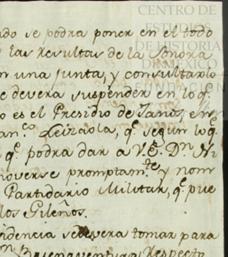 CENTRO DE
ESTUDIOS
DE HISTORIA
DE MEXICO
ado se podra poner en el todo
las Resultas de la Sonora
n una Junta, y consultarlo
e devera suspender en lo q.
o es el Presidio de Janos, en
an.ca Leizaola, q.e segun lo q.
q.e podra dar a V.E. D.n Ni
noverse promptam.te y nom
Partidario Militar, q.e pue
los Gileños.
idencia se devera tomar para
Buenaventura Respecto